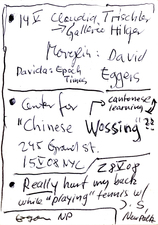 14 V Claudia Trischler
→ Gallerie Hilger
Morefin: David
Davids: Epoch Eggers
Times
• Center for → cantonese
learning
"Chinese Wossing"
245 Grand St.
15 V 08 NYC
28 V 08
• Really hurt my back
while "playing" tennis w/
J. S.
NP New Paltz